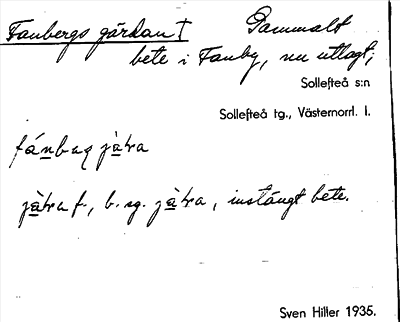 Fanbergs gärdan † Gammalt
bete i Fanby, nu utlagt;
Sollefteå s:n
Sollefteå tg., Västernorrl. l.
fánbaʒ jàʈa
f., b. sg. , instängt bete.
Sven Hiller 1935.